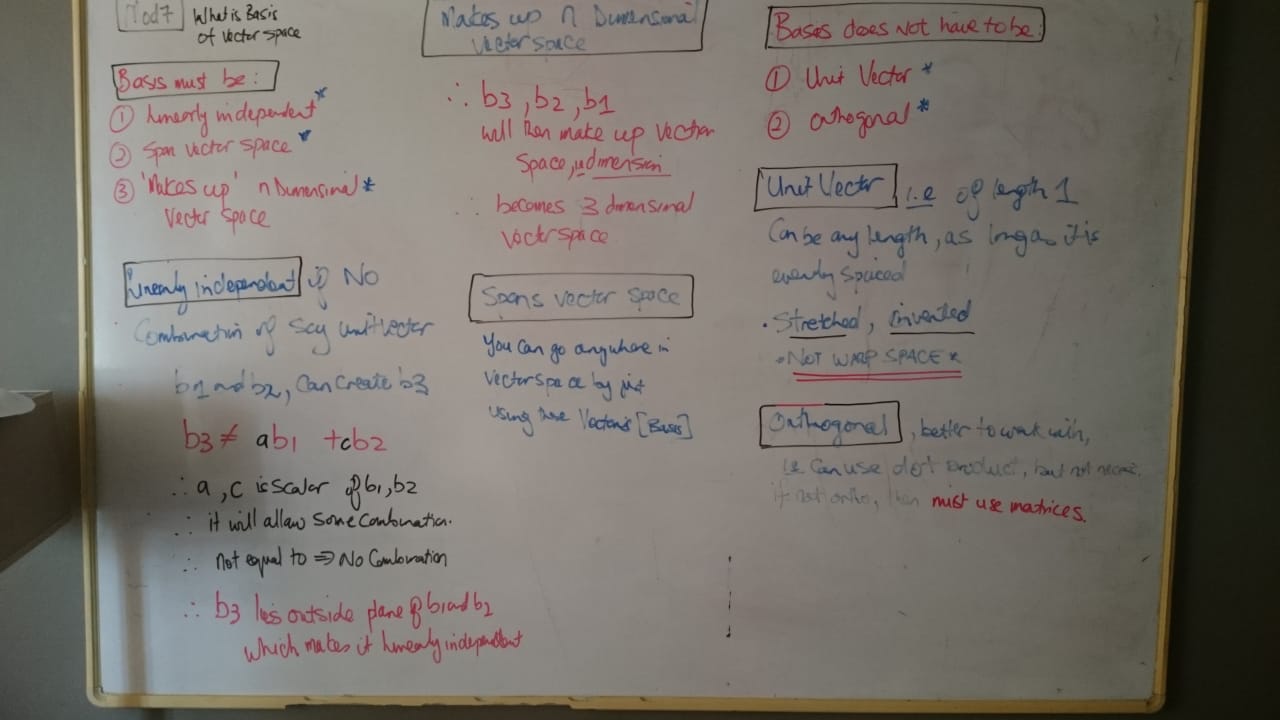 Mod7 What is Basis
of vector space
Basis must be:
① linearly independent*
② Span vector space*
③ 'Makes up' n Dimensional*
Vector space
linearly independent if No
Combination of say unit vector
b1 and b2, Can create b3
b3 ≠ ab1 + cb2
∴ a, c is scalar of b1, b2
∴ it will allow some combination.
∴ not equal to ⇒ No Combination
∴ b3 lies outside plane of b1 and b2
which makes it linearly independent
Makes up n Dimensional
Vector space
∴ b3, b2, b1
will then make up vector
Space, n dimension
∴ becomes 3 dimensional
vector space
Spans vector space
You can go anywhere in
vector space by just
using these Vectors [Basis]
Basis does not have to be:
① Unit Vector *
② orthogonal *
Unit Vector i.e of length 1
Can be any length, as long as it is
evenly spaced
• Stretched, inverted
• NOT WARP SPACE *
Orthogonal, better to work with,
ie can use dot product, but not
if not ortho, then must use matrices.